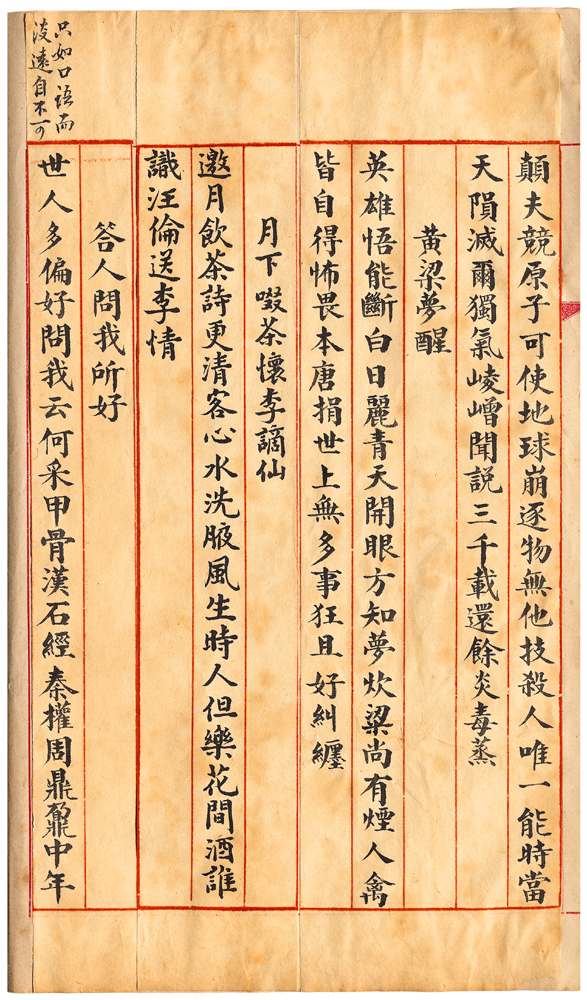 顛夫競原子可使地球崩逐物無他技殺人唯一能時當
天隕滅爾獨氣崚嶒聞説三千載還餘炎毒蒸
黃粱夢醒
英雄悟能斷白日麗青天開眼方知夢炊粱尚有煙人禽
皆自得怖畏本唐捐世上無多事狂且好糾纏
月下啜茶懷李謫仙
邀月飲茶詩更清客心水洗腋風生時人但樂花間酒誰
識汪倫送李情
答人問我所好
世人多偏好問我云何采甲骨漢石經秦權周鼎鼐中年
只如口語而
遠自不可